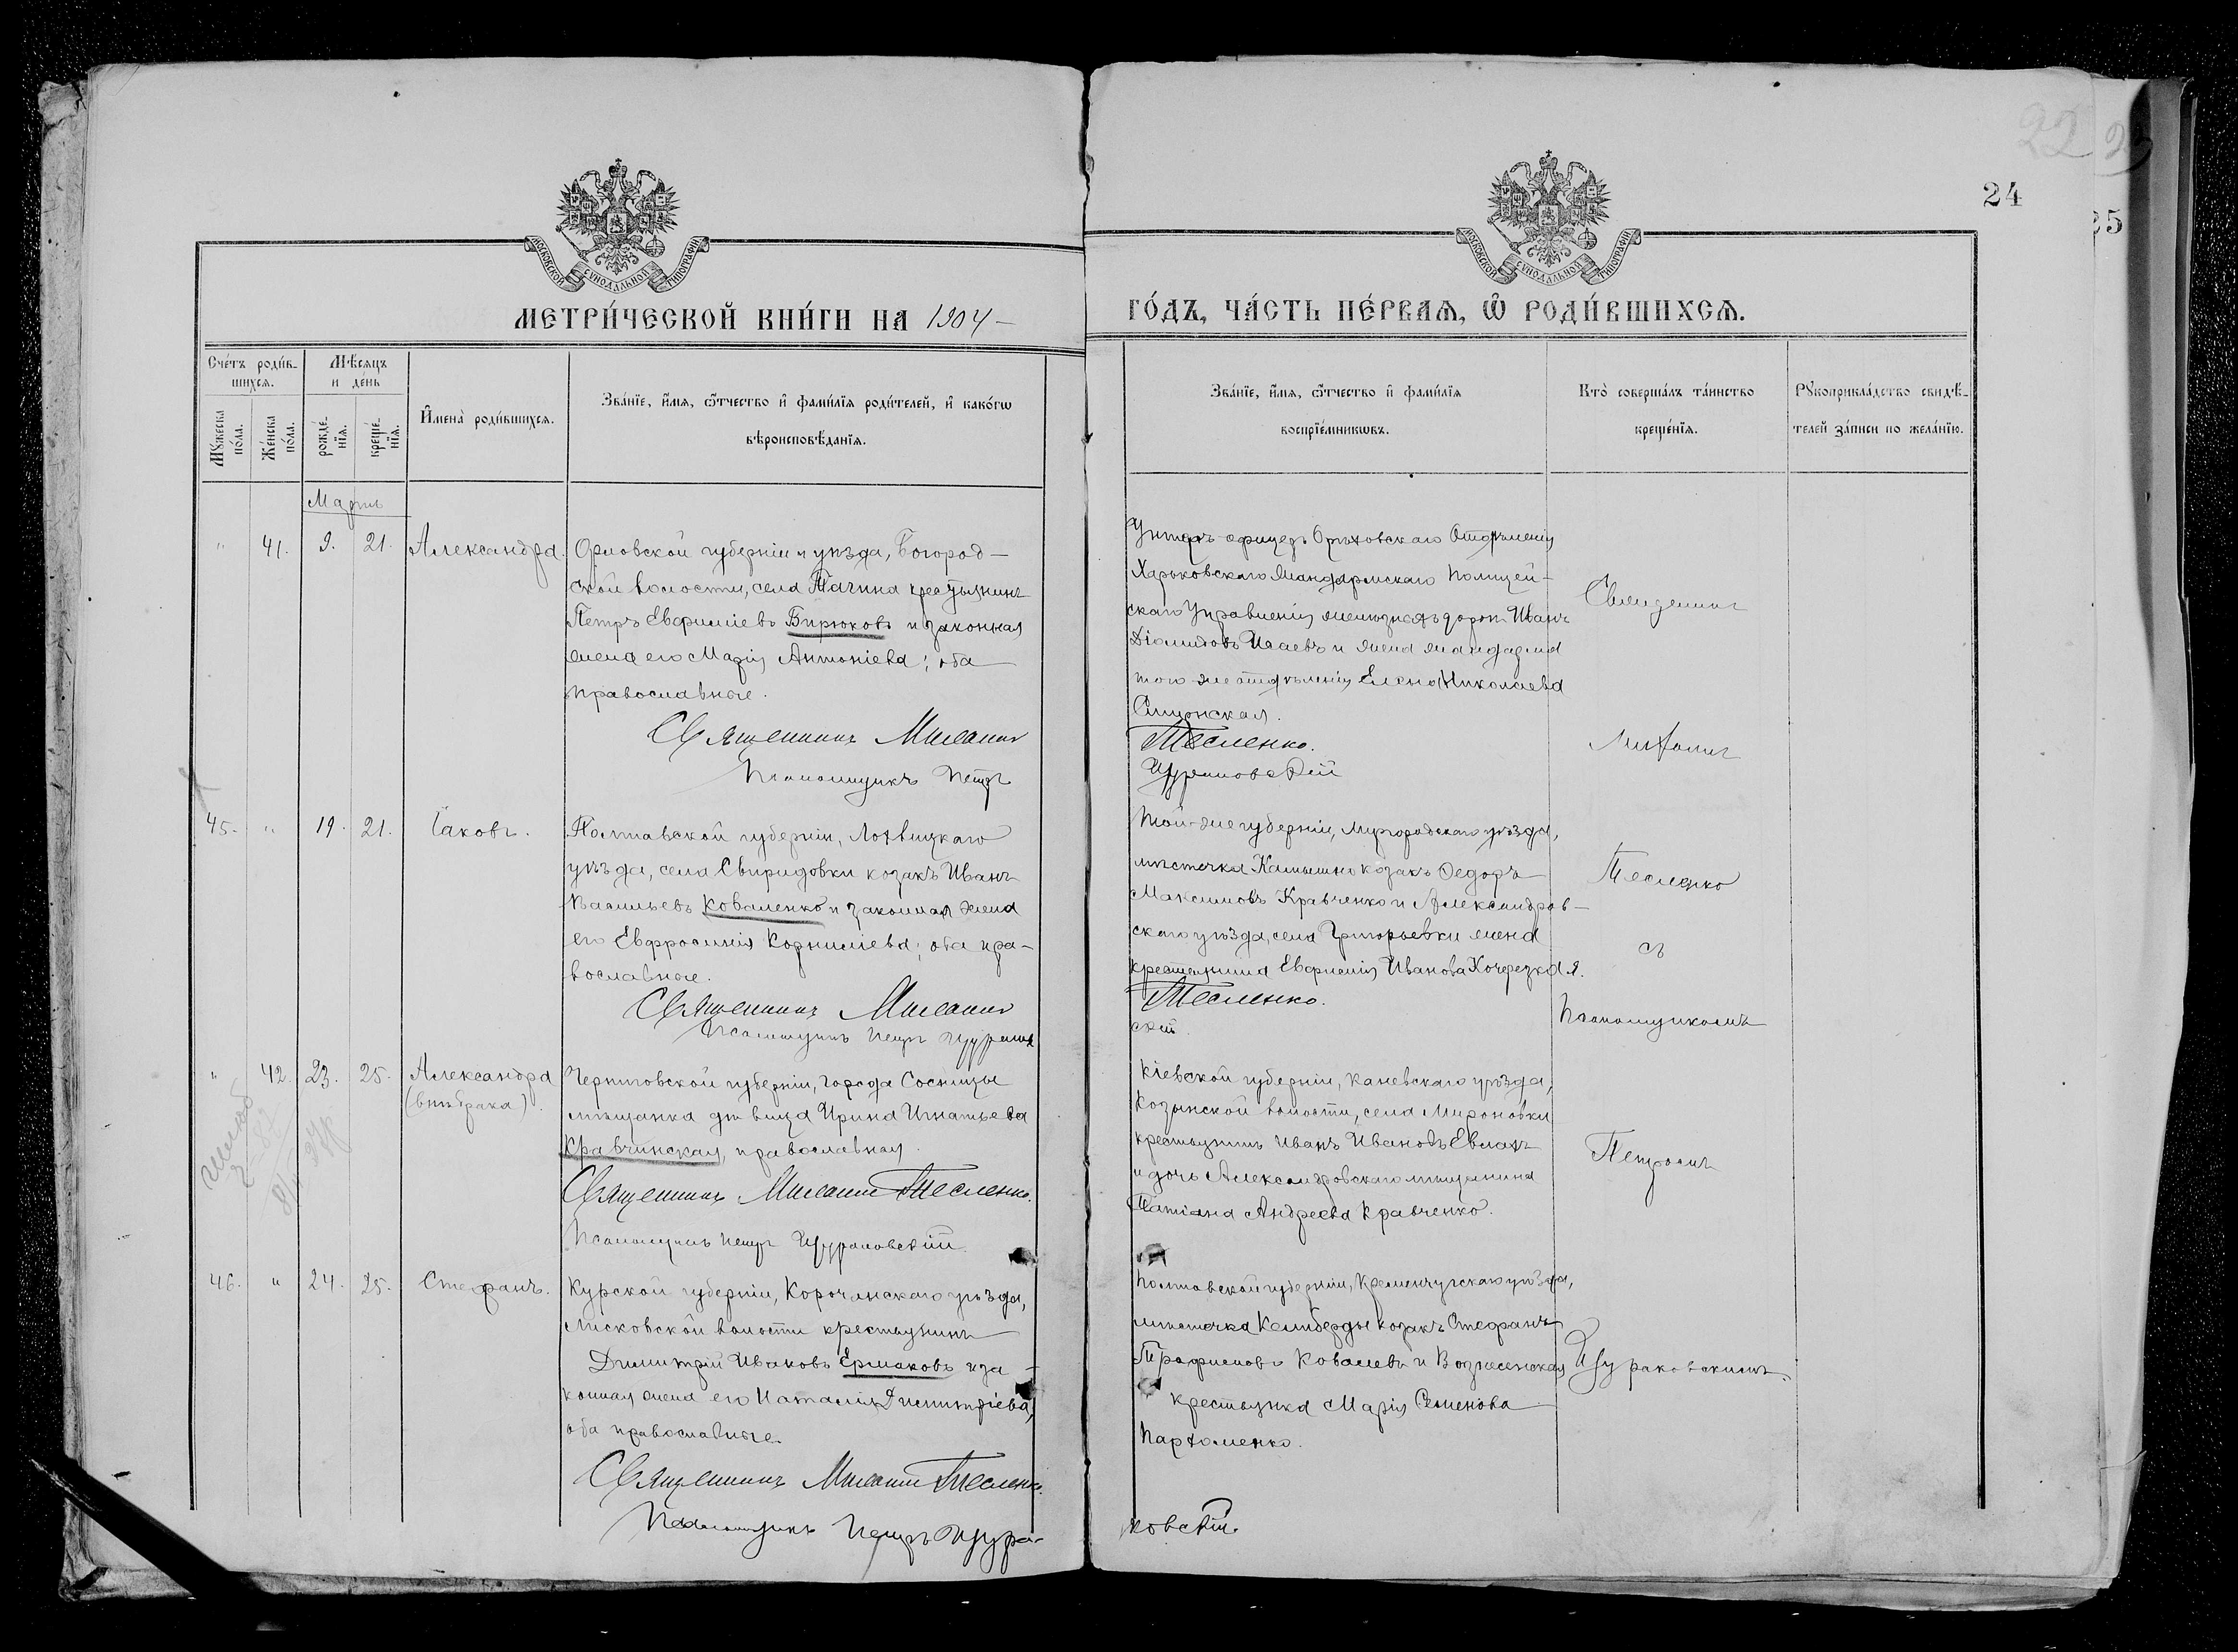 22
24
25
МОСКОВСКОЙ СѴНОДАЛЬНОЙ ТИПОГРАФІИ
МОСКОВСКОЙ СѴНОДАЛЬНОЙ ТИПОГРАФІИ
МЕТРИ́ЧЕСКОЙ КНИ́ГИ НА 1904
ГО́ДЪ, ЧА́СТЬ ПЕ́РВАѦ, Ѡ҆ РОДИ́ВШИХСѦ.
Сче́тъ роди́в-
шихсѧ.
Мѣ́сѧцъ
и де́нь
Мꙋ́жеска
по́ла.
Же́нска
по́ла.
рожде́-
нїѧ.
креще́-
нїѧ.
И҆мена̀ роди́вшихсѧ.
Зва́нїе, и҆́мѧ, ѻ҆́тчество и҆ фами́лїѧ роди́телей, и҆ како́гѡ
вѣроисповѣ́данїѧ.
Зва́нїе, и҆́мѧ, ѻ҆́тчество и҆ фами́лїѧ
воспрїе́мникѡвъ.
Кто̀ соверша́лъ та́инство
креще́нїѧ.
Рꙋкоприкла́дство свидѣ́-
телей за́писи по жела́нїю.
Мартъ
" 41. 9. 21. Александра.
Орловской губерніи и уѣзда, Богород-
ской волости, села Пачина крестьянинъ
Петръ Евфиміевъ Бирюковъ и законная
жена его Марія Антоніева; оба
православные.
Священникъ Михаилъ
Псаломщикъ Петръ
Унтеръ-офицеръ Орѣховскаго Отдѣленія
Харьковскаго Жандармскаго Полицей-
скаго Управленія желѣзныхъ дорогъ Иванъ
Діомидовъ Исаевъ и жена жандарма
того-же отдѣленія Елена Николаева
Тесленко.
Цураковскій
Священникъ
Михаилъ
45. " 19. 21. Іаковъ.
Полтавской губерніи, Лохвицкаго
уѣзда, села Свиридовки козакъ Иванъ
Васильевъ Коваленко и законная жена
его Евфросинія Корниліева; оба пра-
вославные.
Священникъ Михаилъ
Псаломщикъ Петръ Цураков
Той-же губерніи, Миргородскаго уѣзда,
мѣстечка Камышно козакъ Ѳедоръ
Максимовъ Кравченко и Александров-
скаго уѣзда, села Григорьевки жена
крестьянина Евфимія Иванова Кочерезкая.
Тесленко.
скій.
Тесленко
съ
Псаломщикомъ
" 42. 23. 25. Александра
(внѣ брака).
Черниговской губерніи, города Сосницы
мѣщанка дѣвица Ирина Игнатьева
Кравчинская, православная.
Священникъ Михаилъ Тесленко.
Псаломщикъ Петръ Цураковскій.
Кіевской губерніи, Каневскаго уѣзда,
Козинской волости, села Мироновки
крестьянинъ Иванъ Ивановъ Евлахъ
и дочь Александровскаго мѣщанина
Татіана Андреева Кравченко.
Петромъ
46. " 24. 25. Стефанъ.
Курской губерніи, Корочанскаго уѣзда,
Лисковской волости крестьянинъ
Димитрій Ивановъ Ермаковъ и за-
конная жена его Наталія Димитріева,
оба православные.
Священникъ Михаилъ Тесленко.
Псаломщикъ Петръ Цура-
Полтавской губерніи, Кременчугскаго уѣзда,
мѣстечка Келиберды козакъ Стефанъ
Трофимовъ Ковалевъ и Вознесенская
крестьянка Марія Семенова
Пархоменко.
Цураковскимъ.
ковскій.